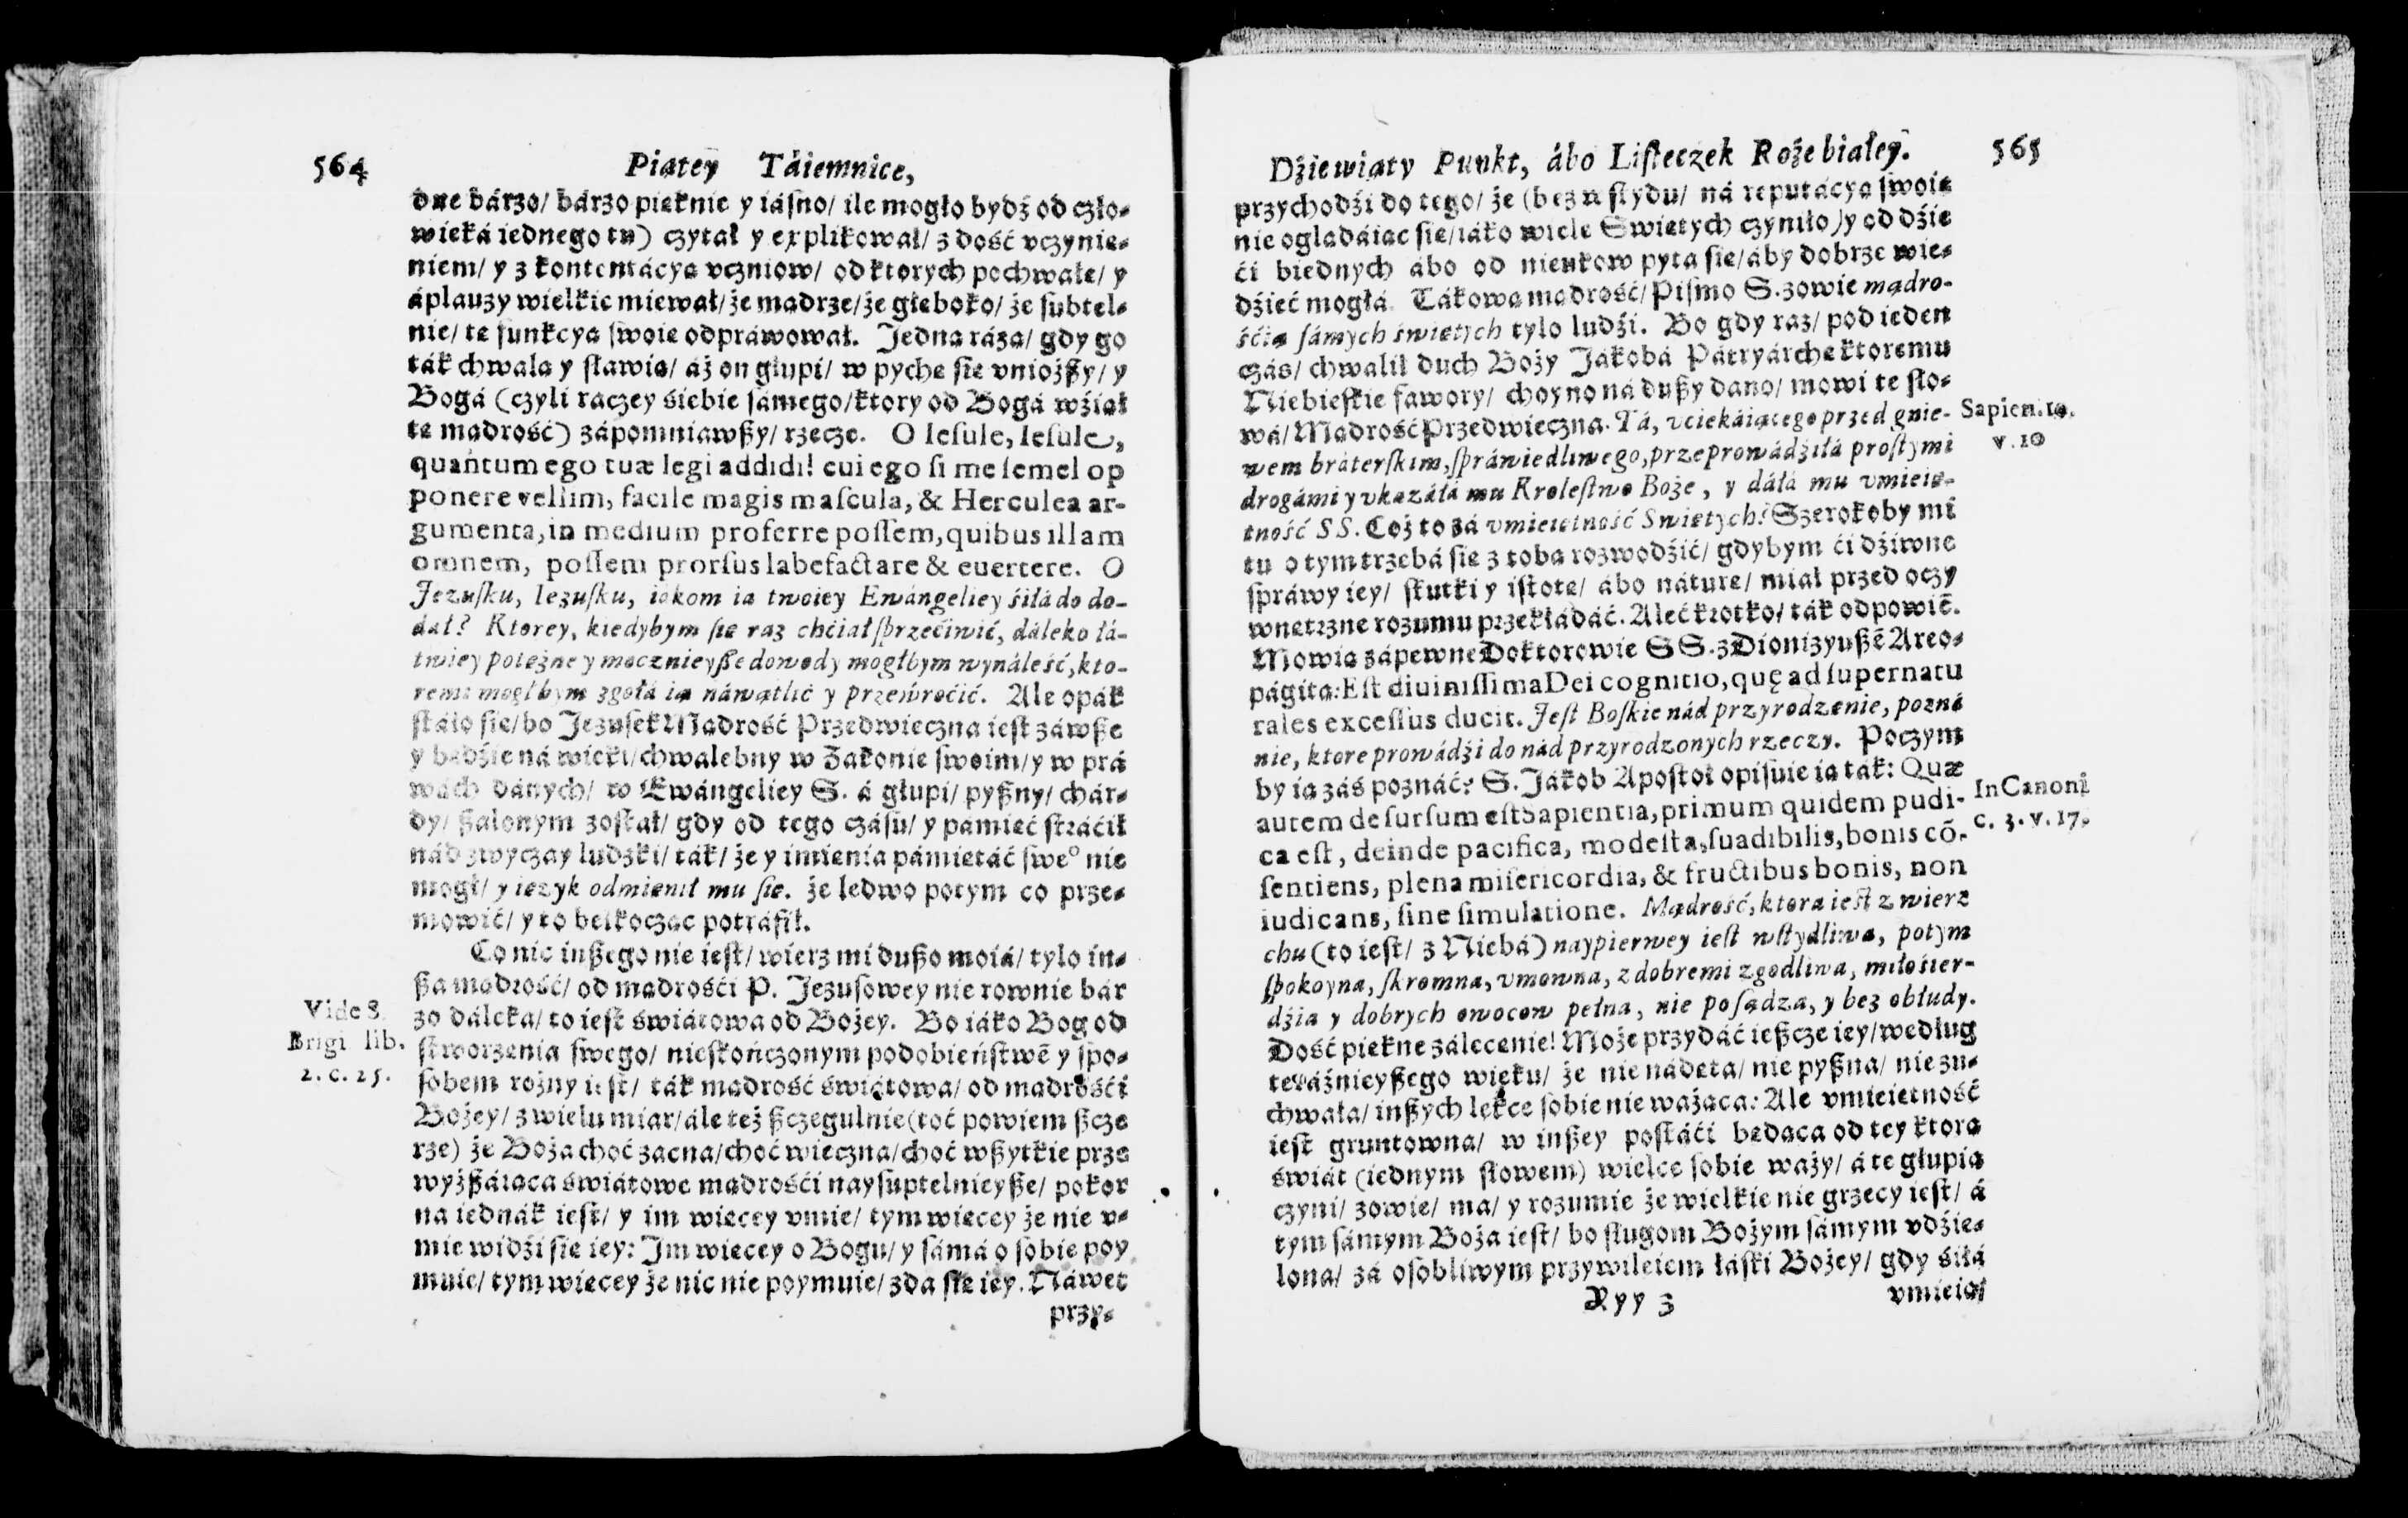 564 Piątey Táiemnice,
dne bárzo/ bárzo pięknie y iáſno/ ile mogło bydź od czło-
wieká iednego tu) czytał y explikował/ z dość vczynie-
niem/ y z kontentácyą vczniow/ od ktorych pochwałę/ y
áplauzy wielkie miewał/ że mądrze/ że głęboko/ że ſubtel-
nie/ tę funkcyą ſwoię odpráwował. Jedną rázą/ gdy go
ták chwalą y ſławią/ áż on głupi/ w pychę ſię vniożßy/ y
Bogá (czyli raczey śiebie ſámego/ ktory od Bogá wźiął
tę mądrość) zápomniawßy/ rzecze. O Ieſule, Ieſule,
quantum ego tuæ legi addidi! cui ego ſi me ſemel op
ponere vellim, facile magis maſcula, & Herculea ar-
gumenta, in medium proferre poſſem, quibus illam
omnem, poſſem prorſus labefactare & euertere. O
Jezuſku, Iezuſku, iákom ia twoiey Ewángeliey śiłá do do-
dał? Ktorey, kiedybym ſię raz chćiał ſprzećiwić, dáleko łá-
twiey potężne y mocnieyße dowody mogłbym wynáleść, kto-
remi mogłbym zgołá ią náwątlić y przewroćić. Ale opák
ſtáło ſię/ bo Jezuſek Mądrość Przedwieczna ieſt záwße
y będźie ná wieki/ chwalebny w Zakonie ſwoim/ y w prá
wách dánych/ w Ewángeliey S. á głupi/ pyßny/ chár-
dy/ ßalonym zoſtał/ gdy od tego czáſu/ y pámięć ſtráćił
nád zwyczay ludzki/ ták/ że y imienia pámiętáć ſweº nie
mogł/ y ięzyk odmienił mu ſię. że ledwo potym co prze-
mowić/ y to bełkocząc potráfił.
Co nic inßego nie ieſt/ wierz mi dußo moiá/ tylo in-
ßa mądrość/ od mądrośći P. Jezuſowey nie rownie bár
zo dáleka/ to ieſt świátowa od Bożey. Bo iáko Bog od
ſtworzenia ſwego/ nieſkończonym podobieńſtwẽ y ſpo-
ſobem rożny ieſt/ ták mądrość świátowa/ od mądrośći
Bożey/ z wielu miar/ ále też ßczegulnie (toć powiem ßcze
rze) że Boża choć zacna/ choć wieczna/ choć wßytkie prze
wyżßáiąca świátowe mądrośći nayſuptelnieyße/ pokor
na iednák ieſt/ y im więcey vmie/ tym więcey że nie v-
mie widźi ſię iey: Im więcey o Bogu/ y ſámá o ſobie poy
muie/ tym więcey że nic nie poymuie/ zda ſię iey. Náwet
przy-
Vide S.
Brigi lib.
2. c. 25.
Dźiewiąty Punkt, ábo Liſteczek Roże białey. 565
przychodźi do tego/ że (bez wſtydu/ ná reputácyą ſwoię
nie oglądáiąc ſię/ iáko wiele Swiętych czyniło) y od dźie
ći biednych ábo od nieukow pyta ſię/ áby dobrze wie-
dźieć mogłá. Tákową mądrość/ Piſmo S. zowie mądro-
śćią ſámych świętych tylo ludźi. Bo gdy raz/ pod ieden
czás/ chwalił duch Boży Jákobá Pátryárchę ktoremu
Niebieſkie fawory/ choyno ná dußy dano/ mowi te ſło-
wá/ Mądrość Przedwieczna. Tá, vciekáiącego przed gnie-
wem bráterſkim, ſpráwiedliwego, przeprowádźiłá proſtymi
drogámi y vkazáłá mu Kroleſtwo Boże, y dáłá mu vmieię-
tność SS. Coż to zá vmieiętność Swiętych? Szerokoby mi
tu o tym trzebá ſię z tobą rozwodźić/ gdybym ći dźiwne
ſpráwy iey/ ſkutki y iſtotę/ ábo náturę/ miał przed oczy
wnętrzne rozumu przekłádáć. Aleć krotko/ ták odpowiẽ.
Mowią zápewne Doktorowie SS. z Dionizyußẽ Areo-
págitą: Eſt diuiniſſima Dei cognitio, quę ad ſupernatu
rales exceſſus ducit. Jeſt Boſkie nád przyrodzenie, pozná
nie, ktore prowádźi do nád przyrodzonych rzeczy. Poczym
by ią záś poznáć? S. Jákob Apoſtoł opiſuie ią ták: Quæ
autem deſurſum eſt Sapientia, primum quidem pudi-
ca eſt, deinde pacifica, modeſta, ſuadibilis, bonis cõ-
ſentiens, plena miſericordia, & fructibus bonis, non
iudicans, ſine ſimulatione. Mądrość, ktora ieſt z wierz
chu (to ieſt/ z Niebá) naypierwey ieſt wſtydliwa, potym
ſpokoyna, ſkromna, vmowna, z dobremi zgodliwa, miłośier-
dźia y dobrych owocow pełna, nie poſądza, y bez obłudy.
Dość piękne zálecenie! Może przydáć ießcze iey/ według
teráźnieyßego wieku/ że nie nádęta/ nie pyßna/ nie zu-
chwała/ inßych lekce ſobie nie ważąca: Ale vmieiętność
ieſt gruntowna/ w inßey poſtáći będąca od tey ktorą
świát (iednym ſłowem) wielce ſobie waży/ á tę głupią
czyni/ zowie/ ma/ y rozumie że wielkie nie grzecy ieſt/ á
tym ſámym Boża ieſt/ bo ſługom Bożym ſámym vdźie-
lona/ zá oſobliwym przywileiem łáſki Bożey/ gdy śiłá
Xyy 3 vmieią/
Sapien. 10.
v. 10
In Canoni
c. 3. v. 17.